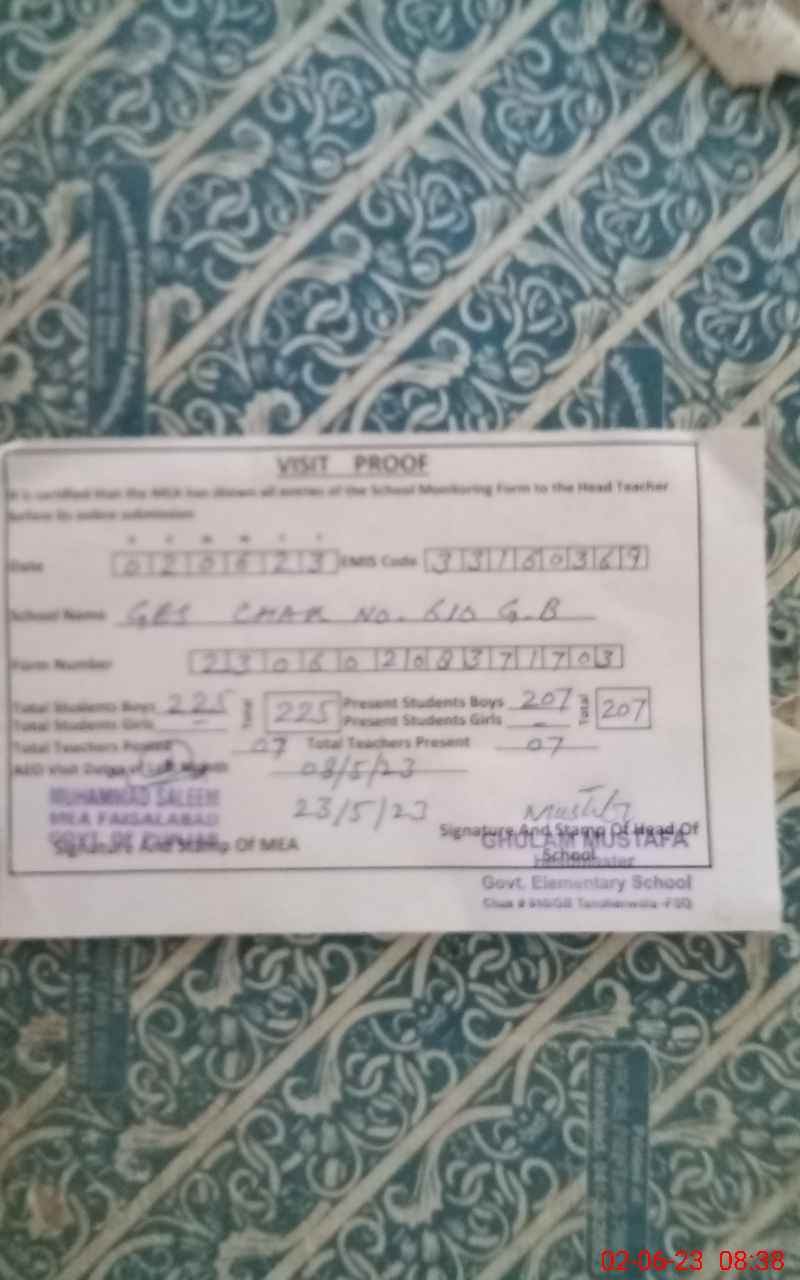 VISIT PROOF
It is certified that the MEA has shown all entries of the School Monitoring Form to the Head Teacher
before its online submission
D D M M Y Y
Date 020623 EMIS Code 33160369
School Name GES CHAK NO. 610 G.B
Form Number 23060208371703
Total Students Boys 225 Total 225 Present Students Boys 207 Total 207
Total Students Girls - Present Students Girls -
Total Teachers Posted 07 Total Teachers Present 07
AEO Visit Dates of Last Month 08/5/23
23/5/23
MUHAMMAD SALEEM
MEA FAISALABAD
GOVT. OF PUNJAB
Signature And Stamp Of MEA
Signature And Stamp Of Head Of
School
GHULAM MUSTAFA
Headmaster
Govt. Elementary School
Chak # 610/GB Tandlianwala -FSD
02-06-23 08:38